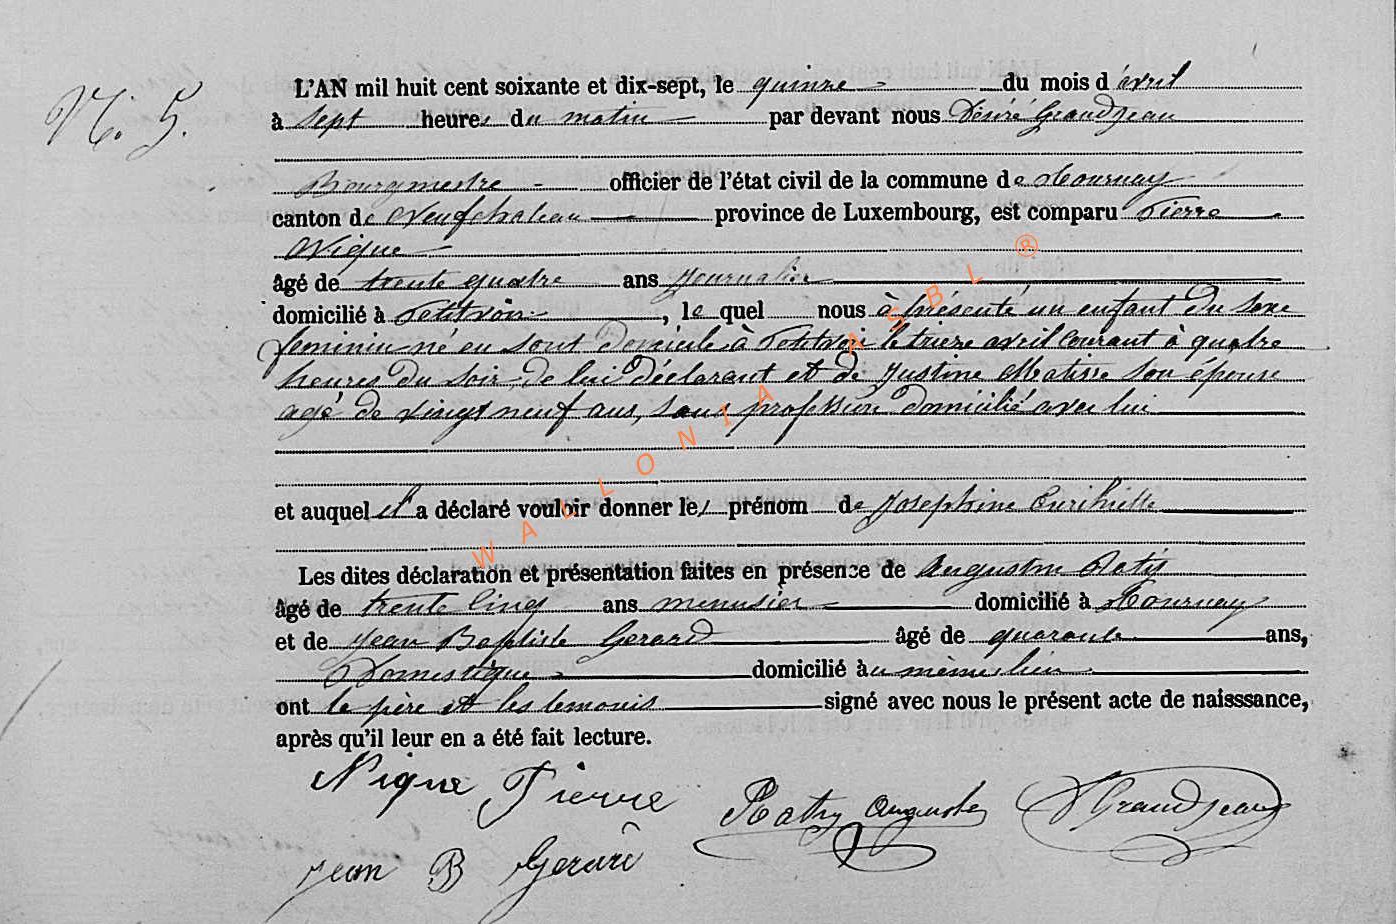 N. 5.
L'AN mil huit cent soixante et dix-sept, le quinze du mois d'avril
à sept heures du matin par devant nous Désiré Grandjean
Bourgmestre officier de l'état civil de la commune de Tournay
canton de Neufchateau province de Luxembourg, est comparu Pierre
Nique
âgé de trente quatre ans Journalier
domicilié à Petitvoir, le quel nous à présenté un enfant du sexe
feminin né en sont domicile à Petitvoir le treize avril courant à quatre
heures du soir, de lui déclarant et de Justine Matisse son épouse
agé de vingt neuf ans, sans profession domicilié avec lui
et auquel il a déclaré vouloir donner les prénom de Josephine
Les dites déclaration et présentation faites en présence de Auguste
âgé de trente cinq ans menusier domicilié à Tournay
et de Jean Baptiste Gerard âgé de quarante ans,
Domestique domicilié au même lieu
ont le père et les temouis signé avec nous le présent acte de naisssance,
après qu'il leur en a été fait lecture.
Nique Pierre
Auguste
D Grandjean
Jean B Gerard
WALLONIA ASBL ®